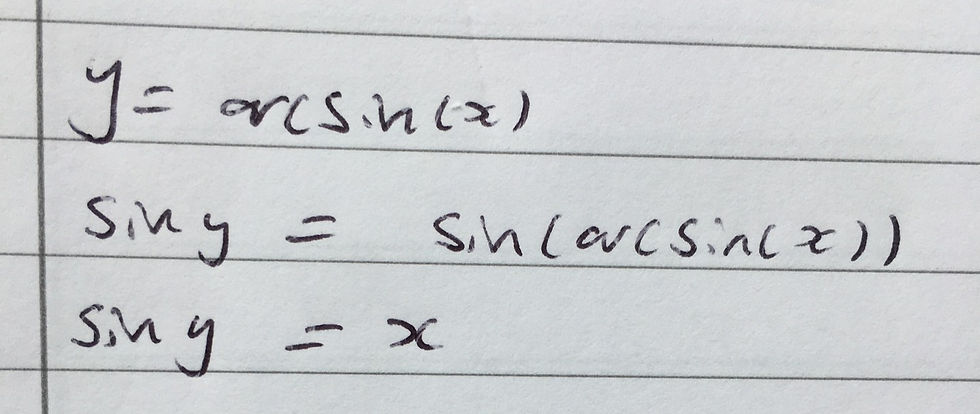 y = arcsin(x)
sin y = sin(arcsin(x))
sin y = x